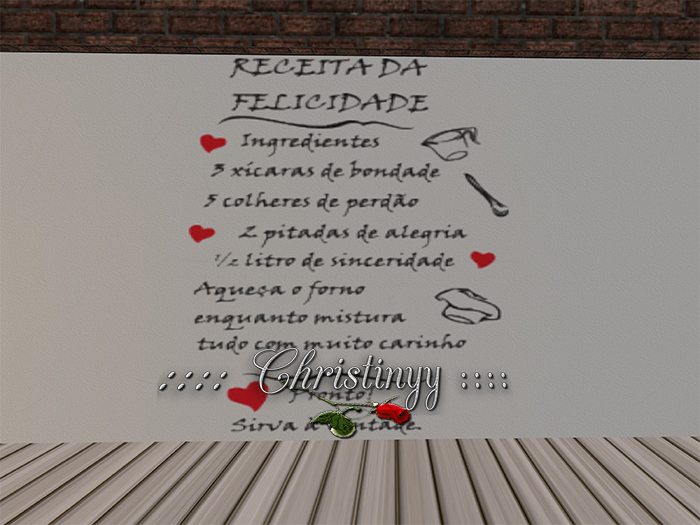 RECEITA DA
FELICIDADE
Ingredientes
3 xícaras de bondade
5 colheres de perdão
2 pitadas de alegria
1/2 litro de sinceridade
Aqueça o forno
enquanto mistura
tudo com muito carinho
.:::: Christinyy ::::
Pronto!
Sirva à